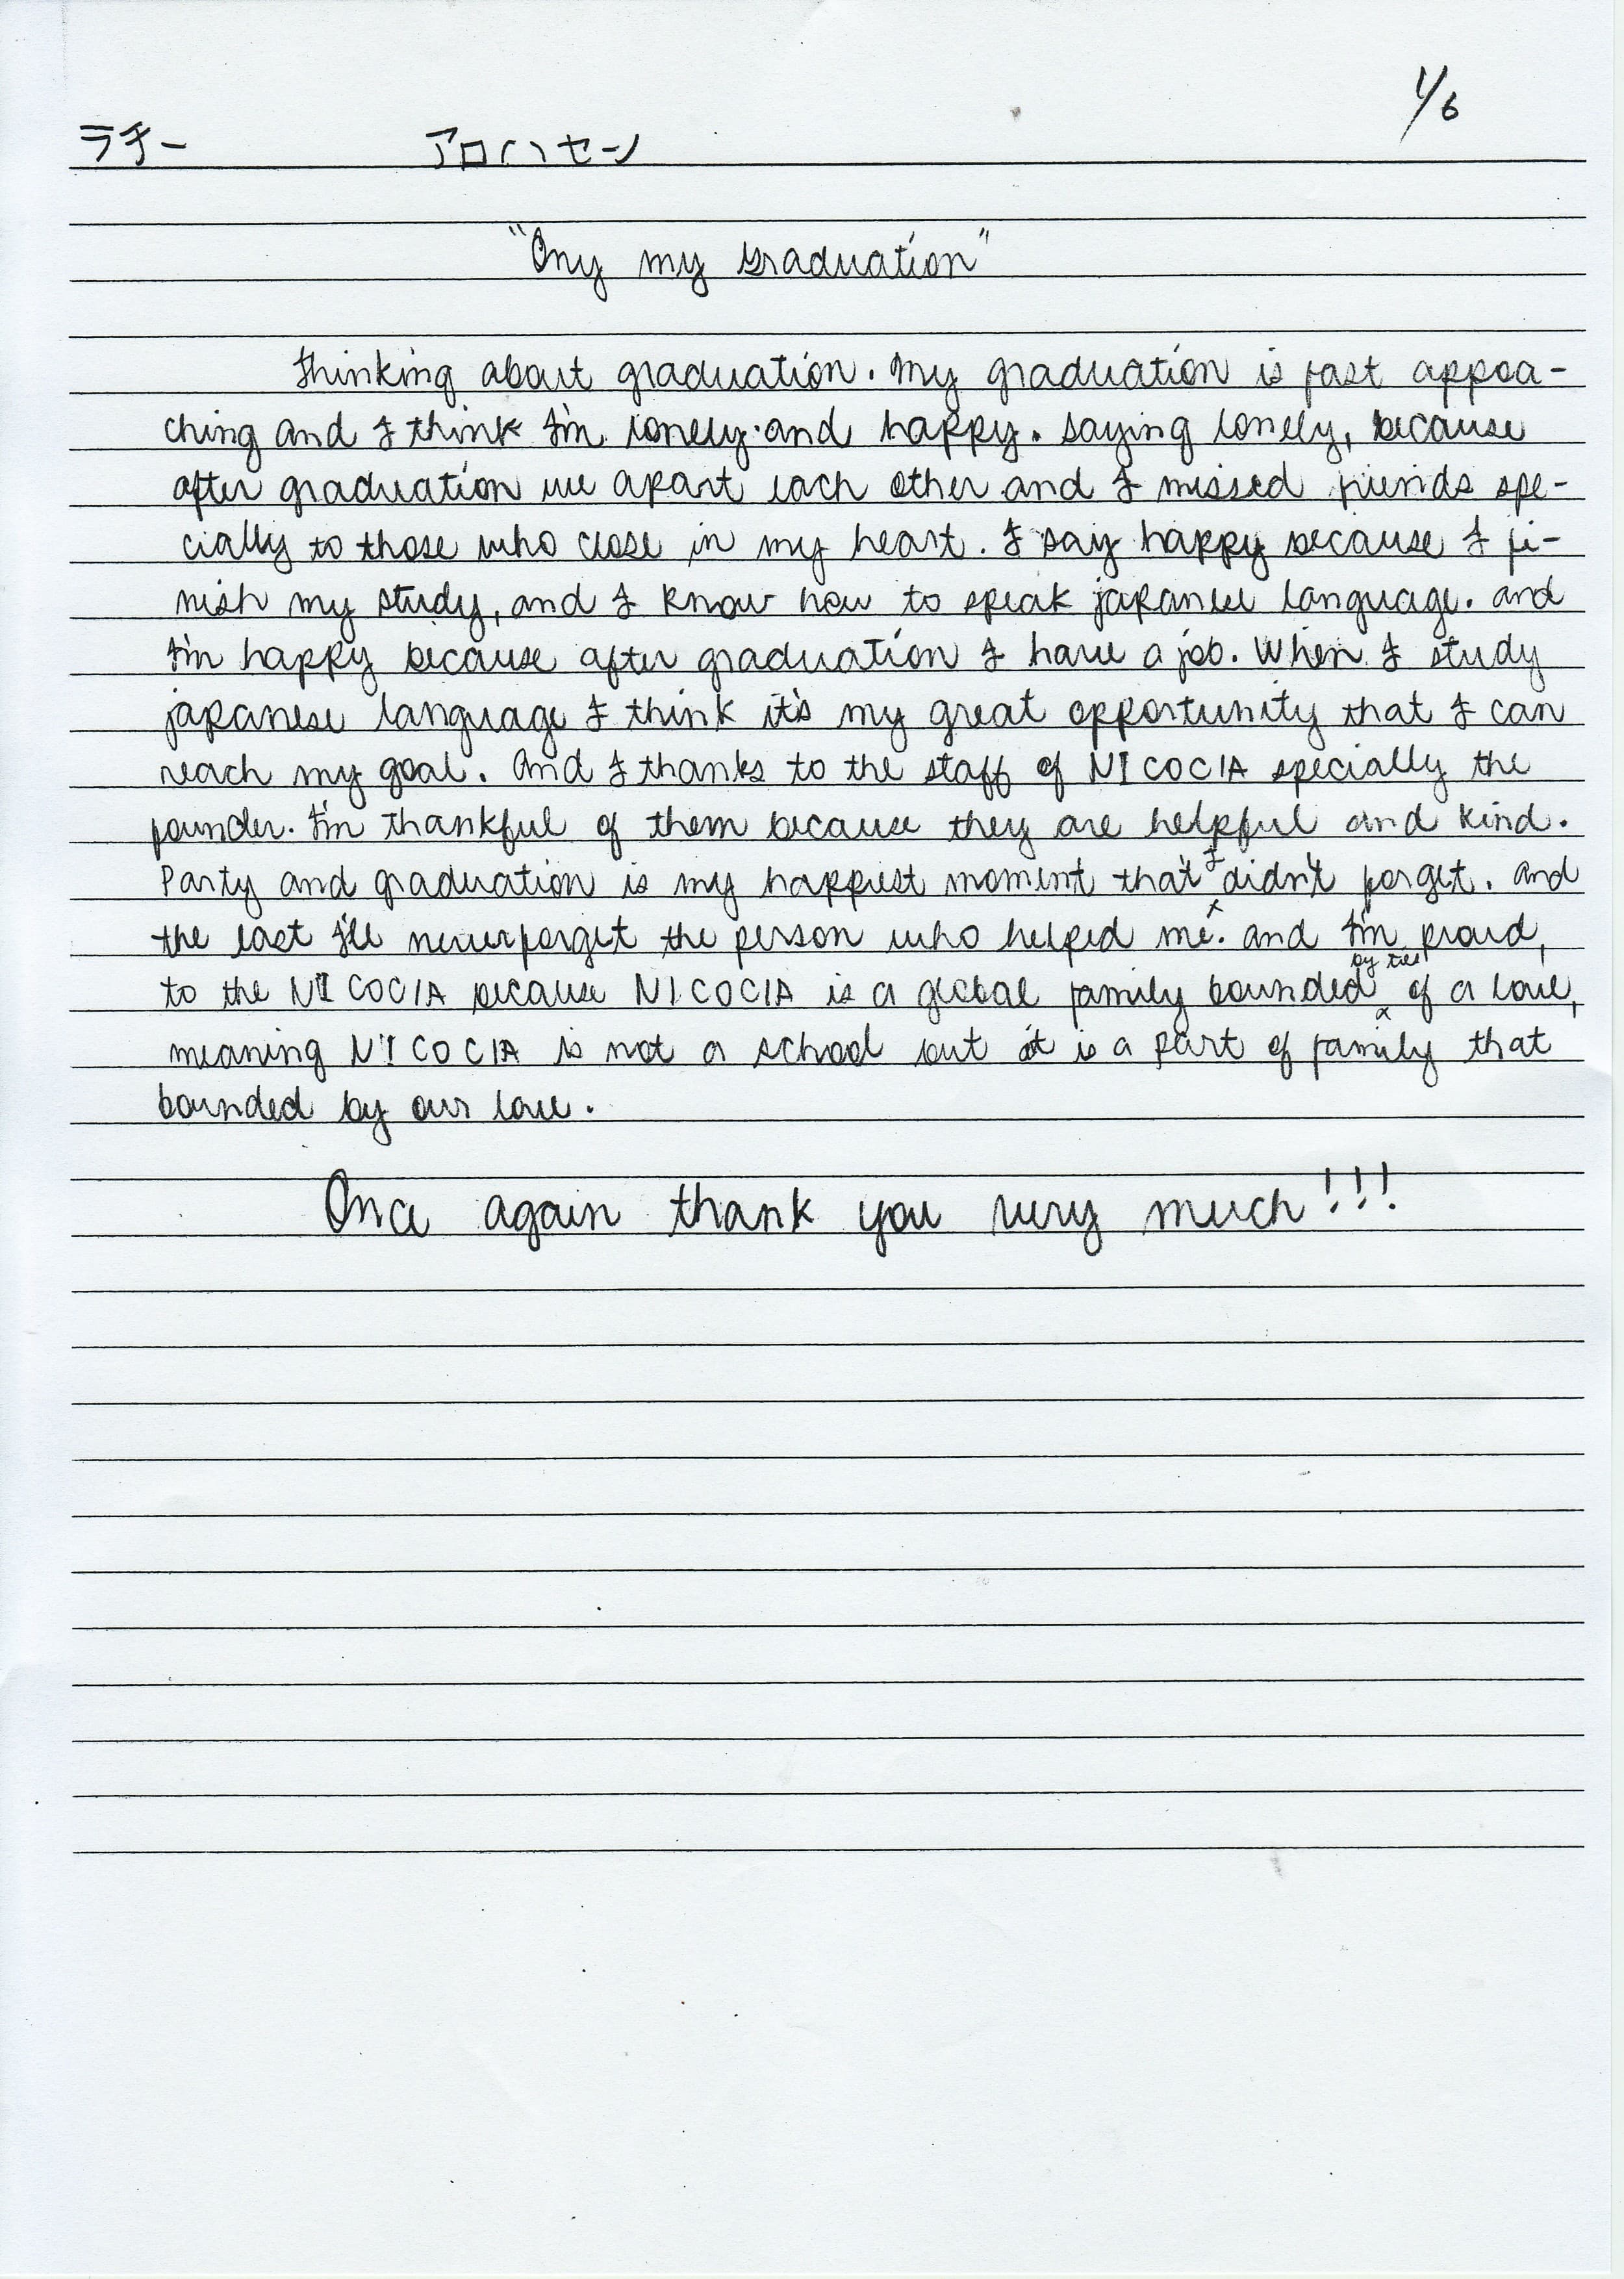 1/6
ラチー アロハセン
"Ony my Graduation"
Thinking about graduation. My graduation is fast appoa-
ching and I think I'm lonely and happy. Saying lonely, because
after graduation we apart each other and I missed friends spe-
cially to those who close in my heart. I say happy because I fi-
nish my study, and I know how to speak japanese language. And
I'm happy because after graduation I have a job. When I study
japanese language I think it's my great opportunity that I can
reach my goal. And I thanks to the staff of NICOCIA specially the
founder. I'm thankful of them because they are helpful and kind.
Party and graduation is my happiest moment that I didn't forget. And
the last I'll never forget the person who helped me. and I'm proud,
to the NICOCIA because NICOCIA is a global family bounded by ties of a love,
meaning NICOCIA is not a school but it is a part of family that
bounded by our love.
Once again thank you very much!!!